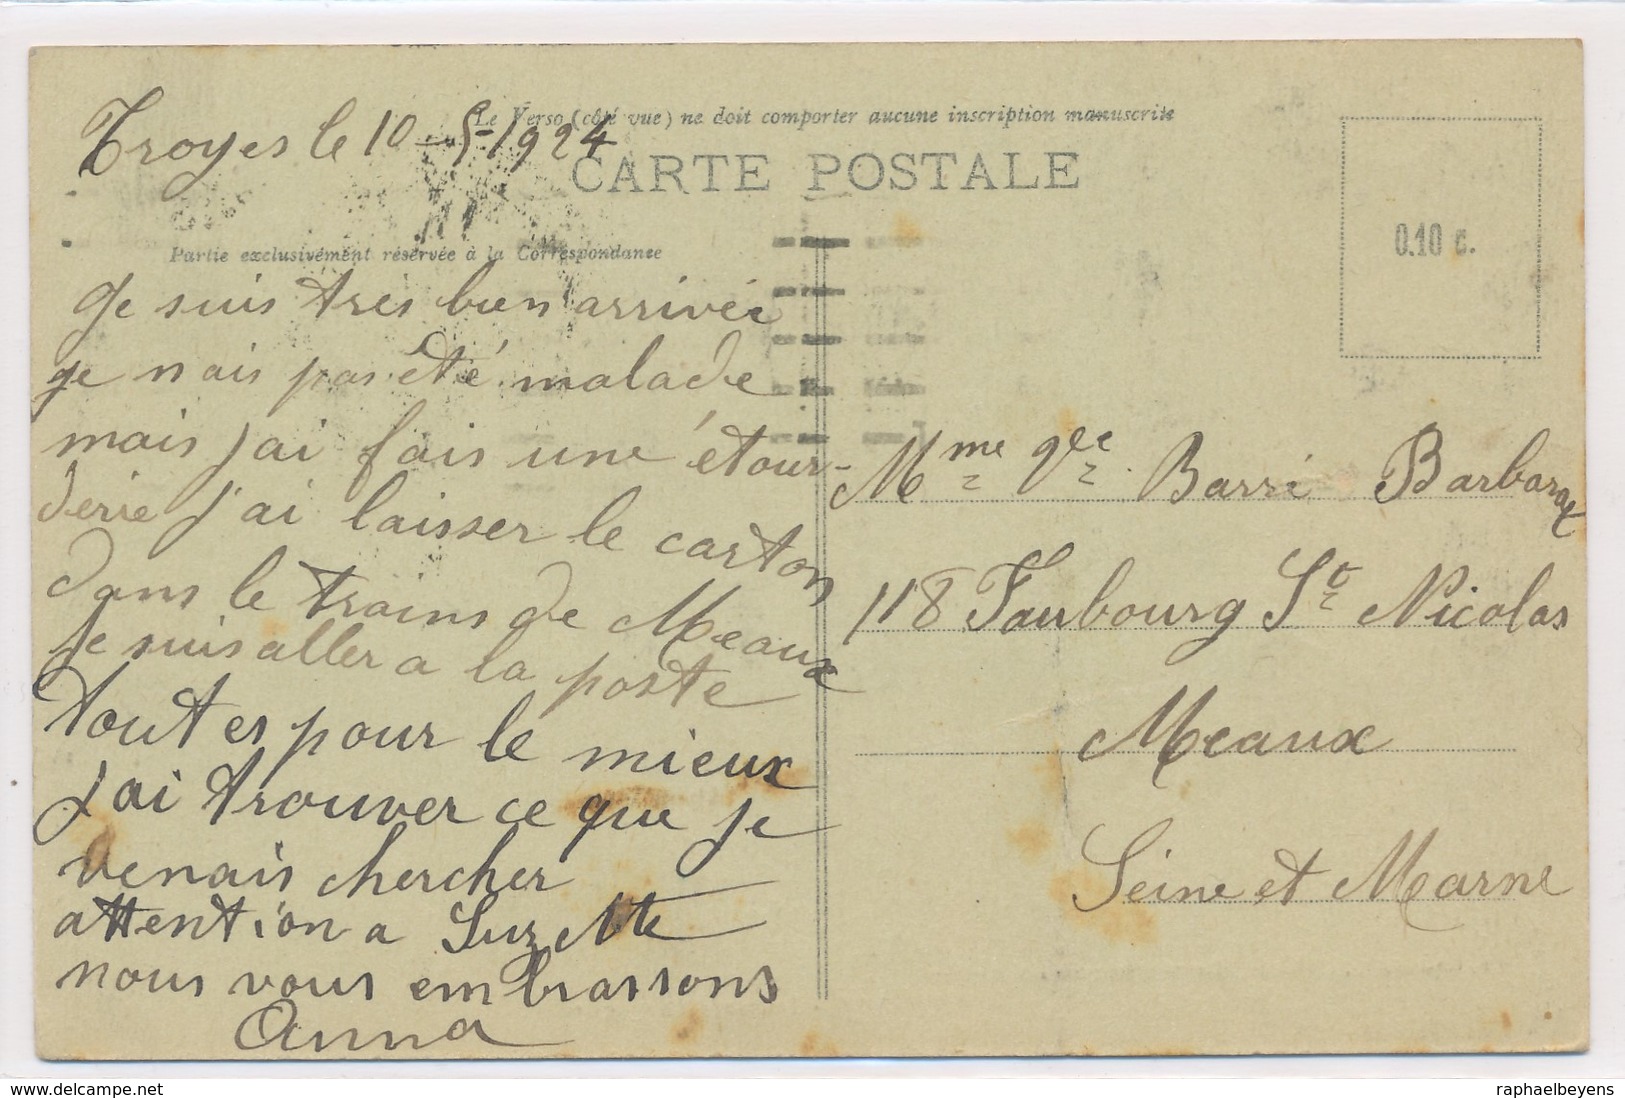 Le Verso (côté vue) ne doit comporter aucune inscription manuscrite
Troyes le 10-5-1924
CARTE POSTALE
0.10 c.
Partie exclusivement réservée à la Correspondance
Je suis tres bien arrivée
je n ais pas été malade
mais j'ai fais une étour-
derie j'ai laisser le carton
dans le trains de Meaux
je suis aller a la poste
tout es pour le mieux
j'ai trouver ce que je
venais chercher
attention a Suzette
nous vous embrassons
Anna
Mme Vve Barri Barbarax
118 Faubourg St Nicolas
Meaux
Seine et Marne
www.delcampe.net
raphaelbeyens